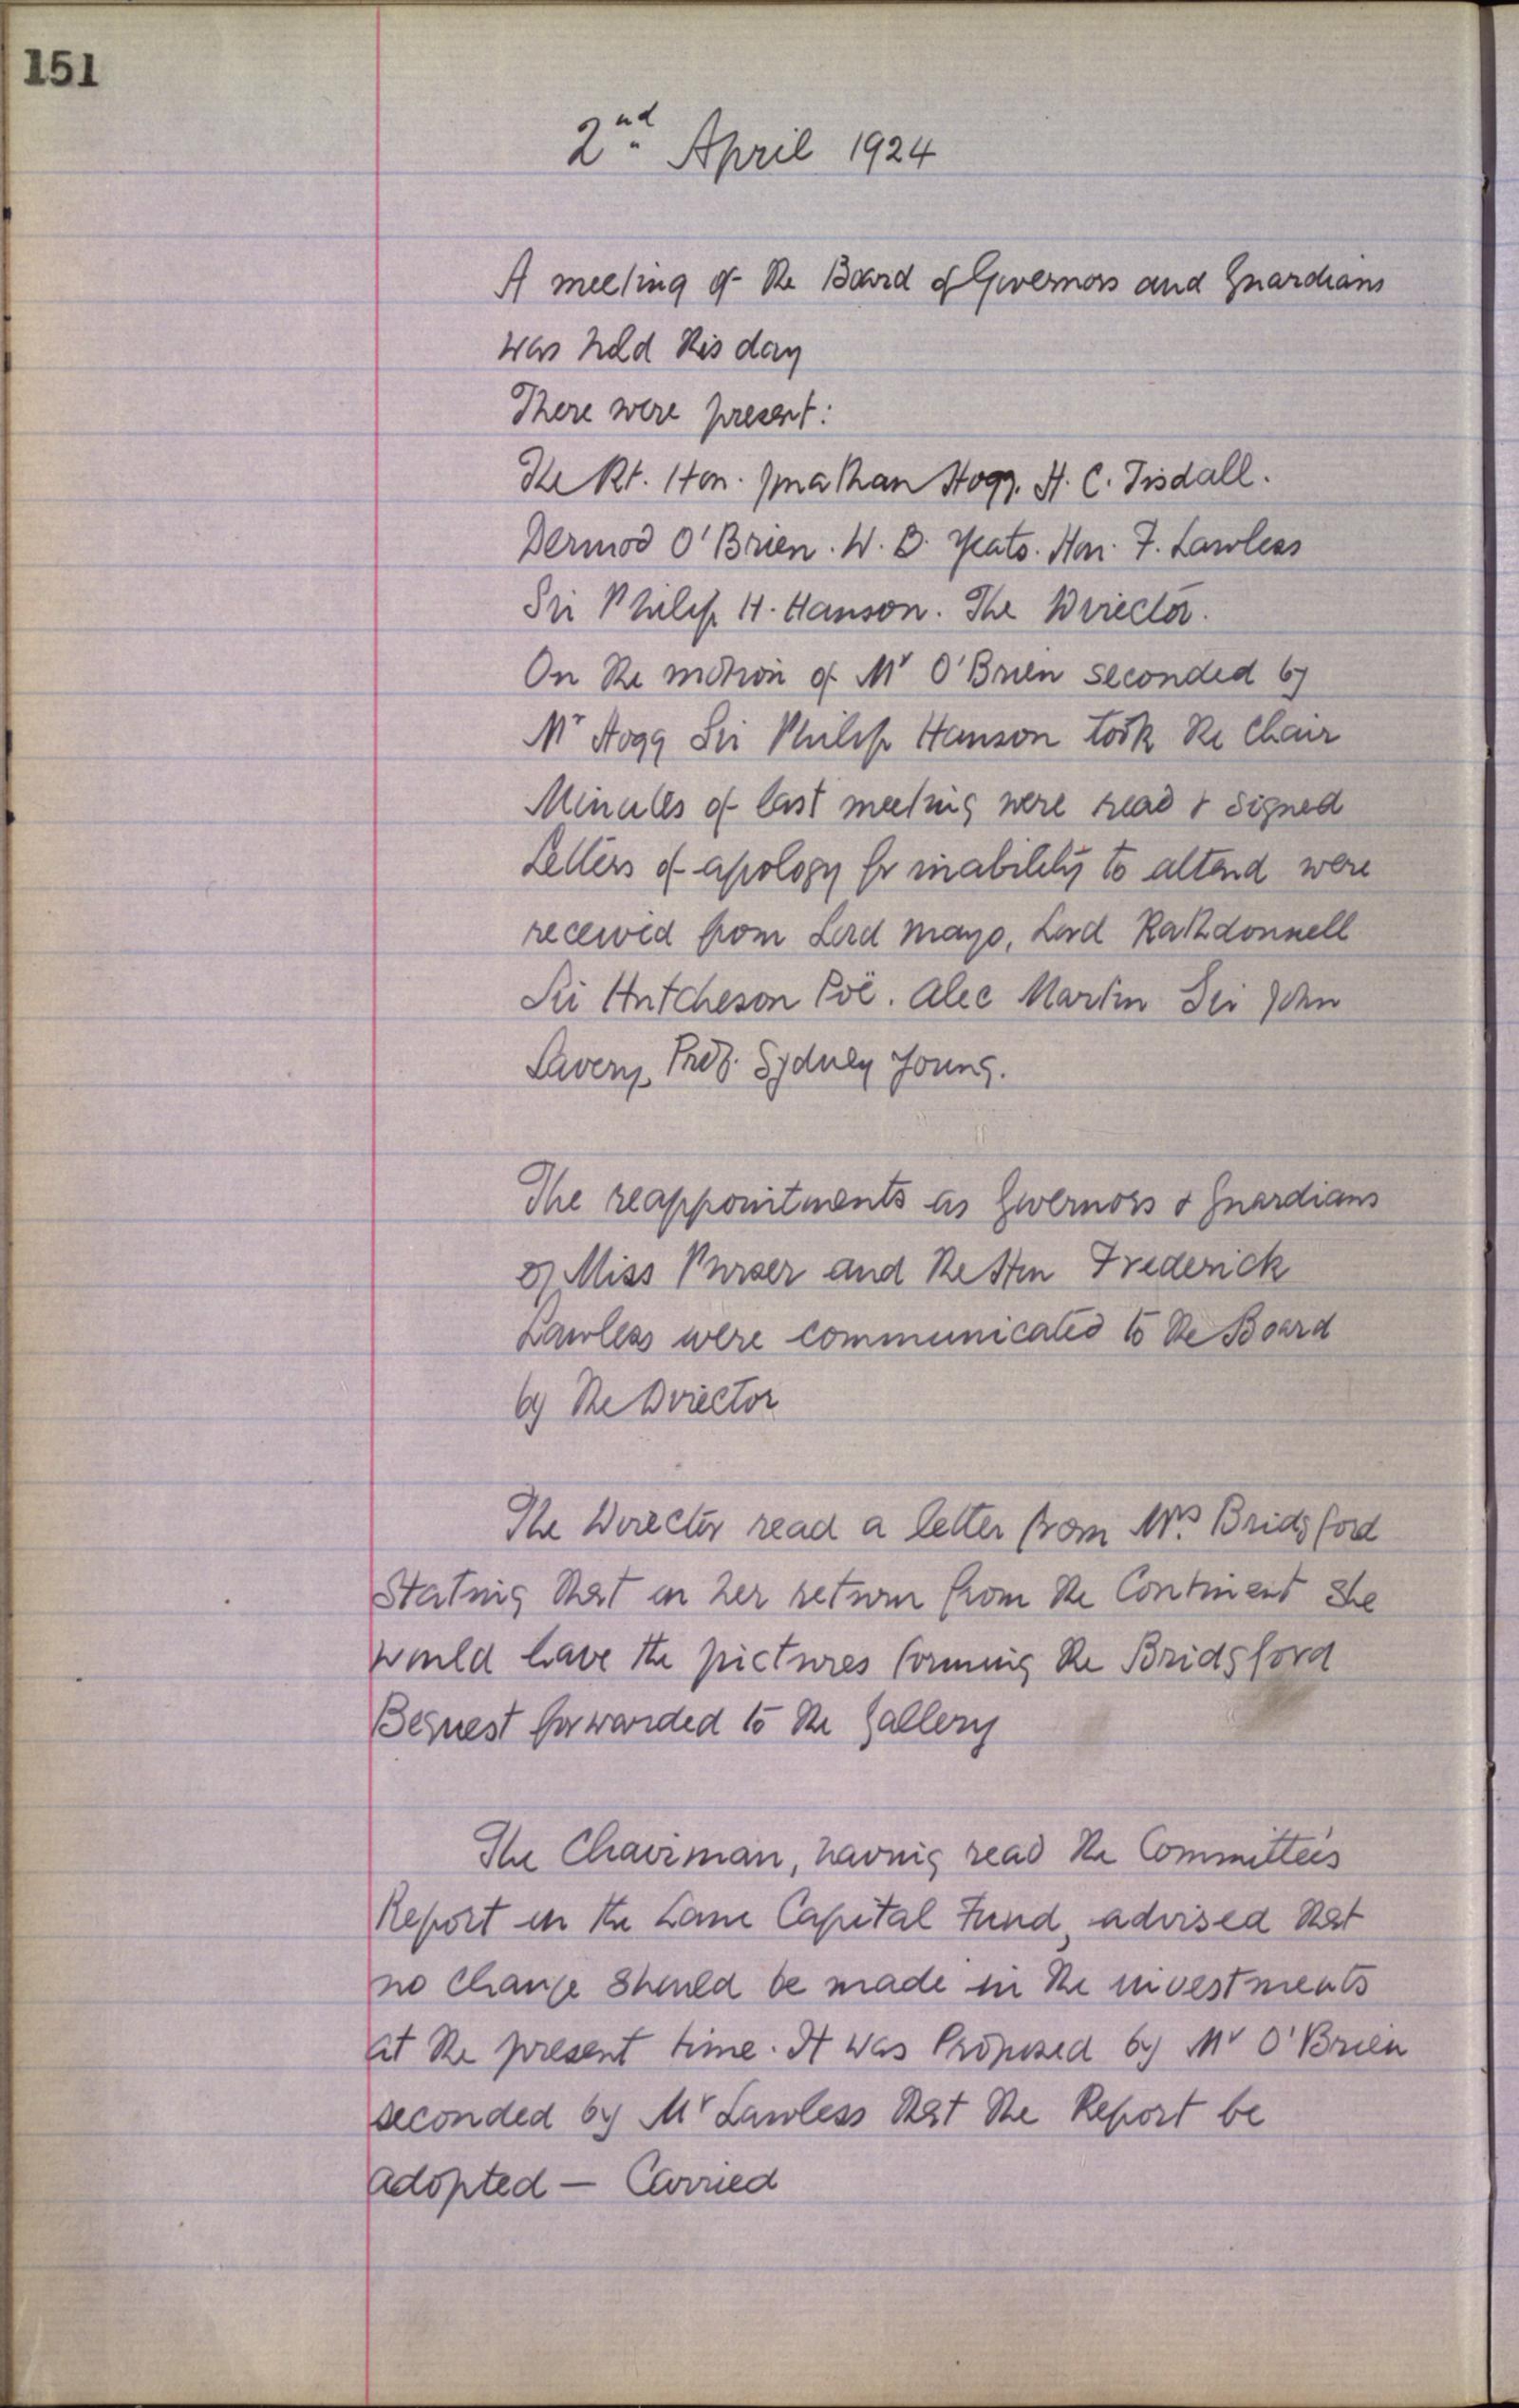 151
2nd April 1924
A meeting of the Board of Governors and Guardians
was held this day
There were present:
The Rt. Hon. Jonathan Hogg. H. C. Tisdall.
Dermod O'Brien. W. B. Yeats. Hon. F. Lawless
Sir Philip H. Hanson. The Director.
On the motion of Mr O'Brien seconded by
Mr Hogg Sir Philip Hanson took the Chair
Minutes of last meeting were read & signed
Letters of apology for inability to attend were
received from Lord Mayo, Lord Rathdonnell
Sir Hutcheson Poë. Alec Martin Sir John
Lavery, Prof. Sydney Young.
The reappointments as Governors & Guardians
of Miss Purser and the Hon Frederick
Lawless were communicated to the Board
by the Director
The Director read a letter from Mrs. Bridgford
Stating that on her return from the Continent she
would have the pictures forming the Bridgford
Bequest forwarded to the Gallery
The Chairman, having read the Committee's
Report on the Lane Capital Fund, advised that
no change should be made in the investments
at the present time. It was Proposed by Mr O'Brien
seconded by Mr Lawless that the Report be
adopted — Carried